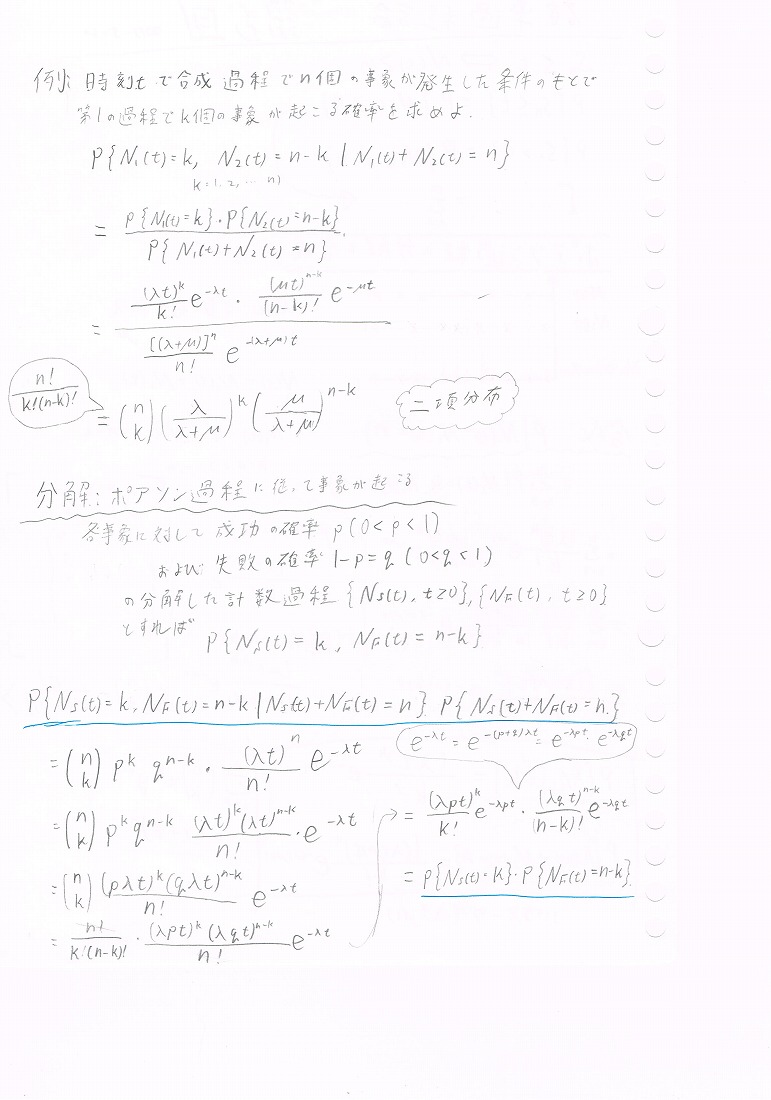 例: 時刻tで合成過程でn個の事象が発生した条件のもとで
第1の過程でk個の事象が起こる確率を求めよ.
P{N₁(t)=k, N₂(t)=n-k | N₁(t)+N₂(t)=n}
k=1,2,…n)
= P{N₁(t)=k}・P{N₂(t)=n-k} / P{N₁(t)+N₂(t)=n}.
= (λt)^k/k! e^{-λt} ・ (μt)^{n-k}/(n-k)! e^{-μt} / [(λ+μ)]^n/n! e^{-(λ+μ)t}
n!/k!(n-k)!
= (n k) (λ/λ+μ)^k (μ/λ+μ)^{n-k}
二項分布
分解: ポアソン過程に従って事象が起こる
各事象に対して成功の確率 p(0<p<1)
および失敗の確率 1-p=q (0<q<1)
の分解した計数過程{Ns(t), t≥0},{N_F(t), t≥0}
とすれば
P{Ns(t)=k, N_F(t)=n-k}
P{Ns(t)=k, N_F(t)=n-k | Ns(t)+N_F(t)=n} P{Ns(t)+N_F(t)=n.}
e^{-λt} = e^{-(p+q)λt} = e^{-λpt}・e^{-λqt}
= (n k) p^k q^{n-k} ・ (λt)^n/n! e^{-λt}
= (n k) p^k q^{n-k} (λt)^k(λt)^{n-k}/n! ・e^{-λt}
= (n k) (pλt)^k(qλt)^{n-k}/n! e^{-λt}
= n!/k!(n-k)! ・ (λpt)^k(λqt)^{n-k}/n! e^{-λt}
= (λpt)^k/k! e^{-λpt} ・ (λqt)^{n-k}/(n-k)! e^{-λqt}
= P{Ns(t)=k}・P{N_F(t)=n-k}